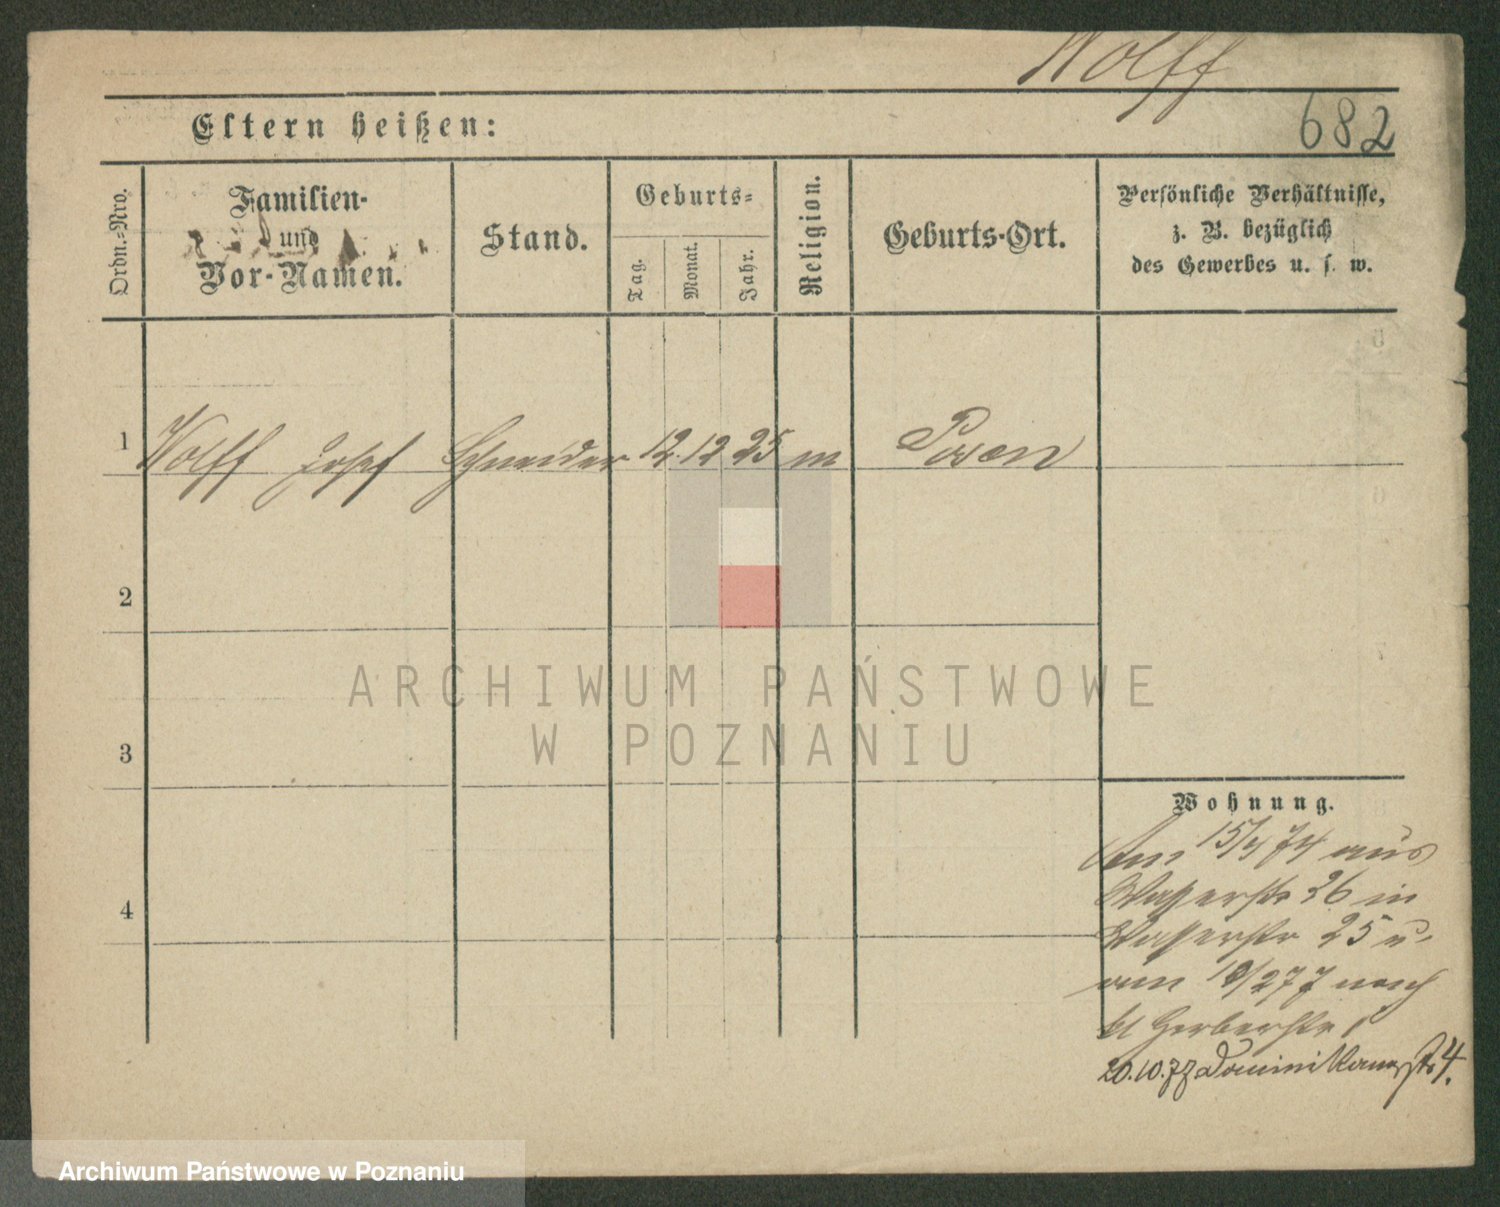 Wolff
682
Eltern heißen:
Ordn.-Nro.
Familien-
und
Vor-Namen.
Stand.
Geburts-
Tag.
Monat.
Jahr.
Religion.
Geburts-Ort.
Persönliche Verhältnisse,
z. B. bezüglich
des Gewerbes u. s. w.
1 Wolff Josef Schneider 12. 12 25 m Posen
2
3
4
ARCHIWUM PAŃSTWOWE
W POZNANIU
Wohnung.
Am 15/4 74 aus
Wasserstr 26 in
Wasserstr 25 u.
am 10/2 77 nach
kl Gerberstr
20.10.77 Dominikanerstr 4.
Archiwum Państwowe w Poznaniu